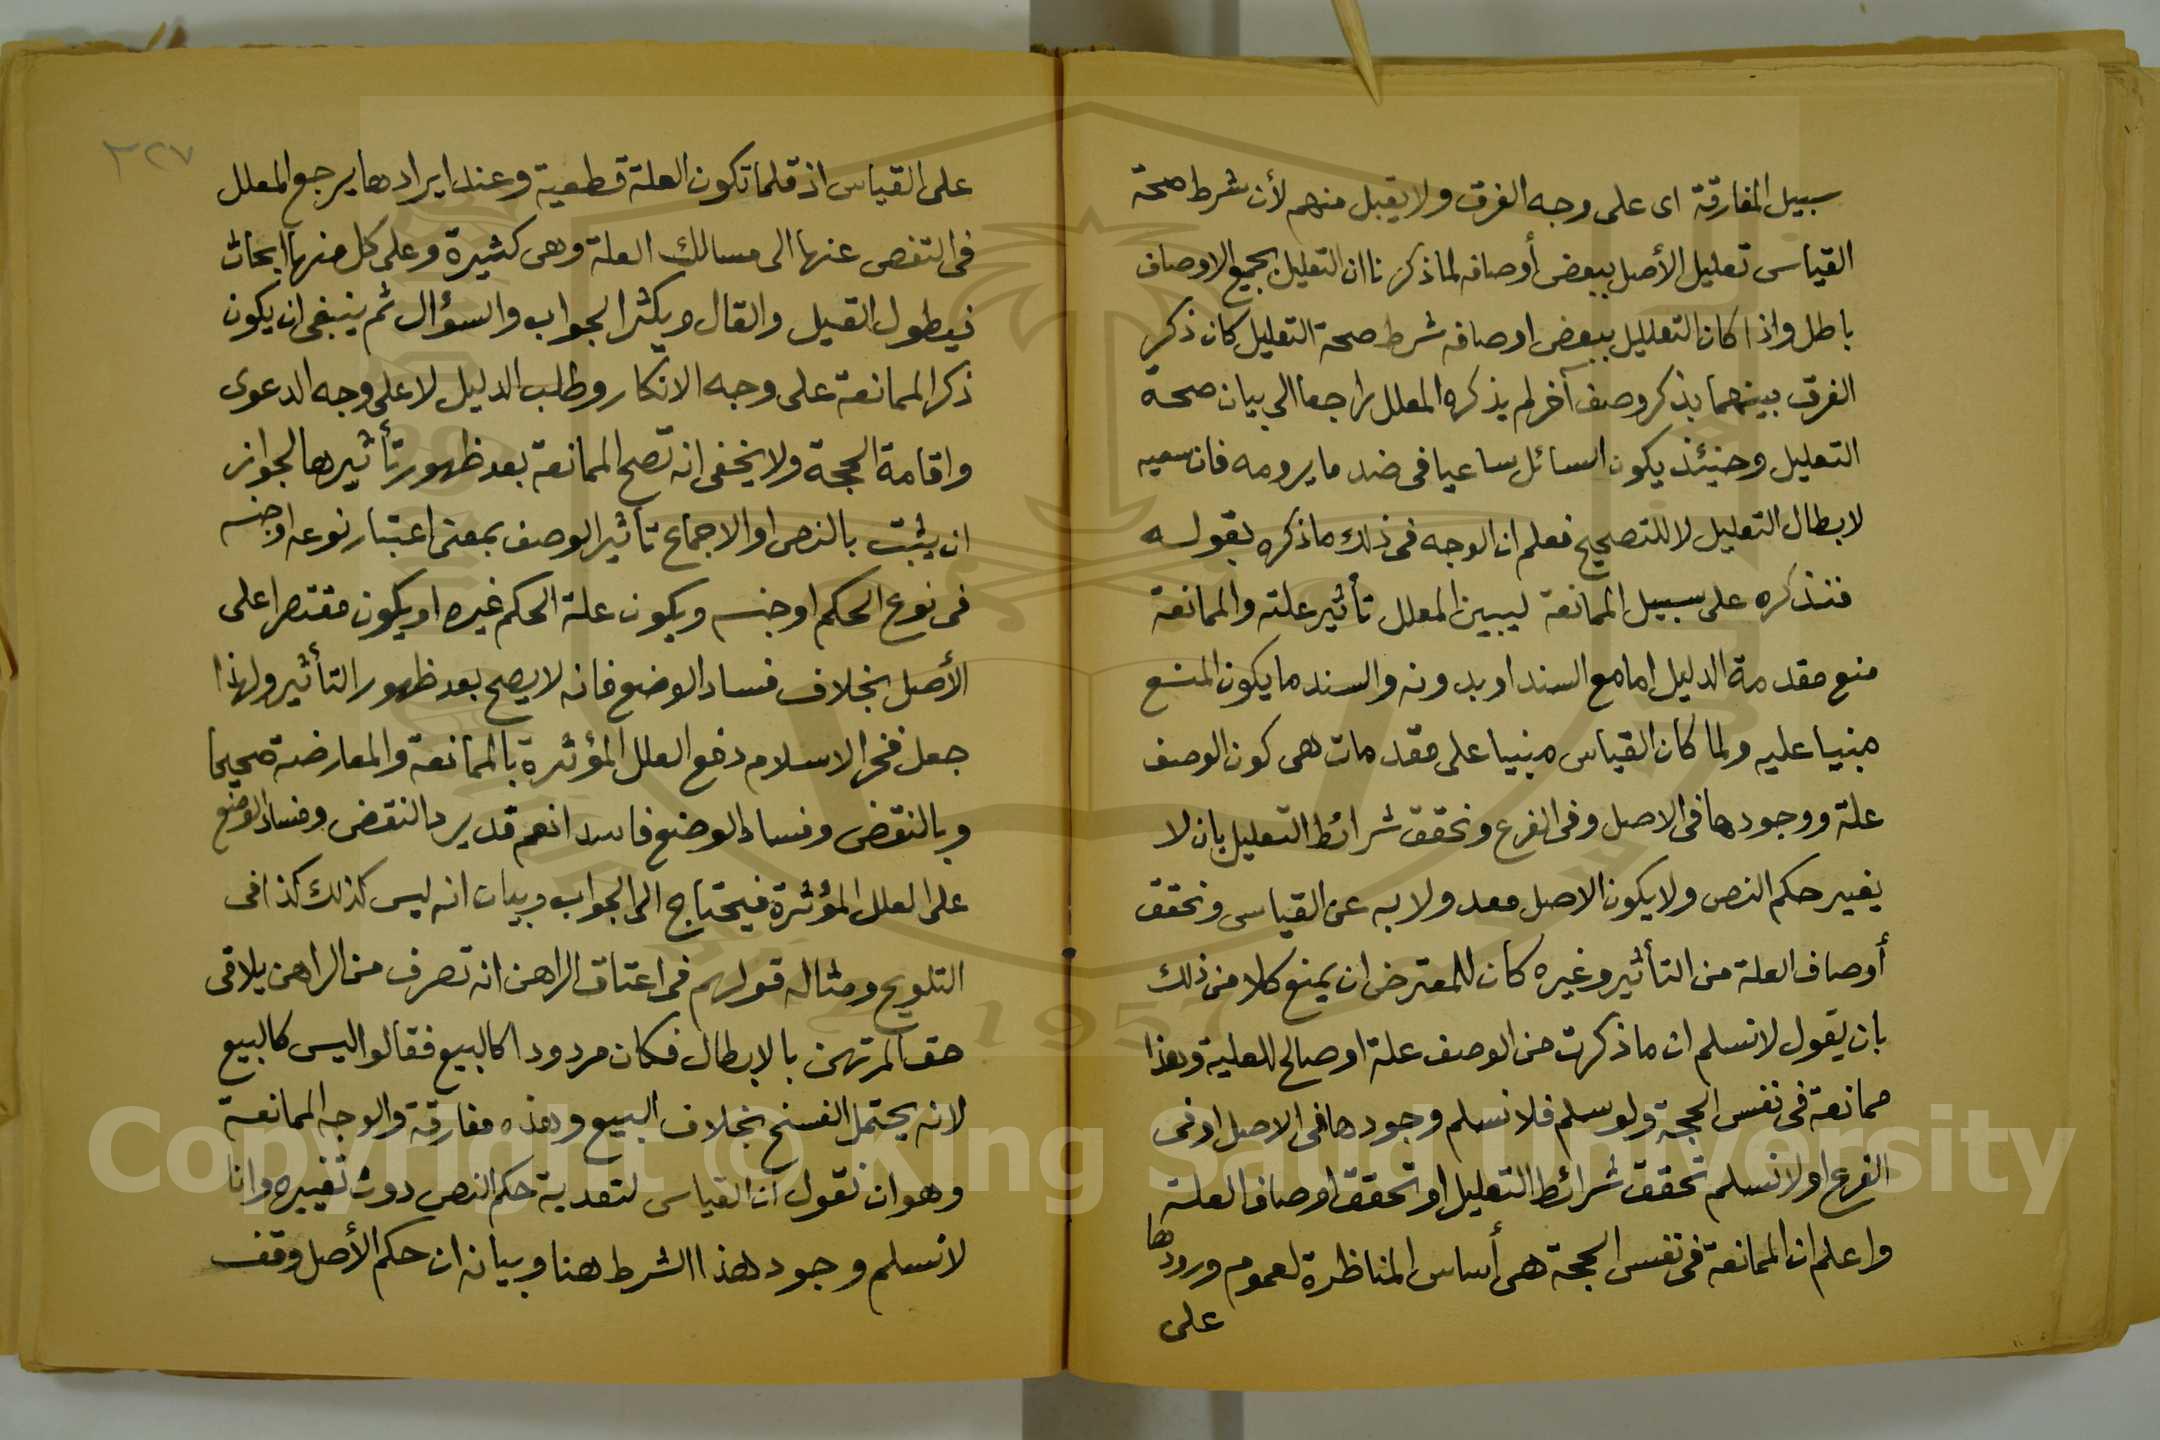 سبيل المفارقة اى على وجه الفرق ولا يقبل منهم لأن شرط صحة
القياس تعليل الأصل ببعض أوصافه لما ذكرنا ان التعليل بجميع الاوصاف
باطل واذا كان التعليل ببعض اوصافه شرط صحة التعليل كان ذكر
الفرق بينهما بذكر وصف آخر لم يذكره المعلل راجعا الى بيان صحة
التعليل وحينئذ يكون السائل ساعيا فى ضد ما يرومه فان سعيه
لابطال التعليل لا للتصحيح فعلم ان الوجه فى ذلك ما ذكره بقوله
فنذكره على سبيل الممانعة ليبين المعلل تأثير علته والممانعة
منع مقدمة الدليل اما مع السند او بدونه والسند ما يكون المنع
مبنيا عليه ولما كان القياس مبنيا على مقدمات هى كون الوصف
علة ووجودها فى الاصل وفى الفرع وتحقق شرائط التعليل بان لا
يغير حكم النص ولا يكون الاصل معدولا به عن القياس وتحقق
أوصاف العلة من التأثير وغيره كان للمعترض ان يمنع كلا من ذلك
بان يقول لا نسلم ان ما ذكرت من الوصف علة او صالح للعلية وهذا
ممانعة فى نفس الحجة ولو سلم فلا نسلم وجودها فى الاصل او فى
الفرع او لا نسلم تحقق شرائط التعليل او تحقق اوصاف العلة
واعلم ان الممانعة فى نفس الحجة هى أساس المناظرة لعموم ورودها
على
٣٢٧
على القياس اذ قلما تكون العلة قطعية وعند ايرادها يرجع المعلل
فى التفصى عنها الى مسالك العلة وهى كثيرة وعلى كل منها ابحاث
فيطول القيل والقال ويكثر الجواب والسؤال ثم ينبغى ان يكون
ذكر الممانعة على وجه الانكار وطلب الدليل لا على وجه الدعوى
واقامة الحجة ولا يخفى انه تصح الممانعة بعد ظهور تأثيرها لجواز
ان يثبت بالنص او الاجماع تأثير الوصف بمعنى اعتبار نوعه او جنسه
فى نوع الحكم او جنسه ويكون علة الحكم غيره او يكون مقتصرا على
الأصل بخلاف فساد الوضع فانه لا يصح بعد ظهور التأثير ولهذا
جعل فخر الاسلام دفع العلل المؤثرة بالممانعة والمعارضة صحيحا
وبالنقض وفساد الوضع فاسدا نعم قد يرد النقض وفساد الوضع
على العلل المؤثرة فيحتاج الى الجواب وبيان انه ليس كذلك كذا فى
التلويح ومثاله قولهم فى اعتاق الراهن انه تصرف من الراهن يلاقى
حق المرتهن بالابطال فكان مردودا كالبيع فقالوا ليس كالبيع
لانه يحتمل الفسخ بخلاف البيع وهذه مفارقة والوجه الممانعة
وهو ان نقول ان القياس لتعدية حكم النص دون تغييره وانا
لا نسلم وجود هذا الشرط هنا وبيانه ان حكم الأصل وقف
Copyright © King Saud University
1957